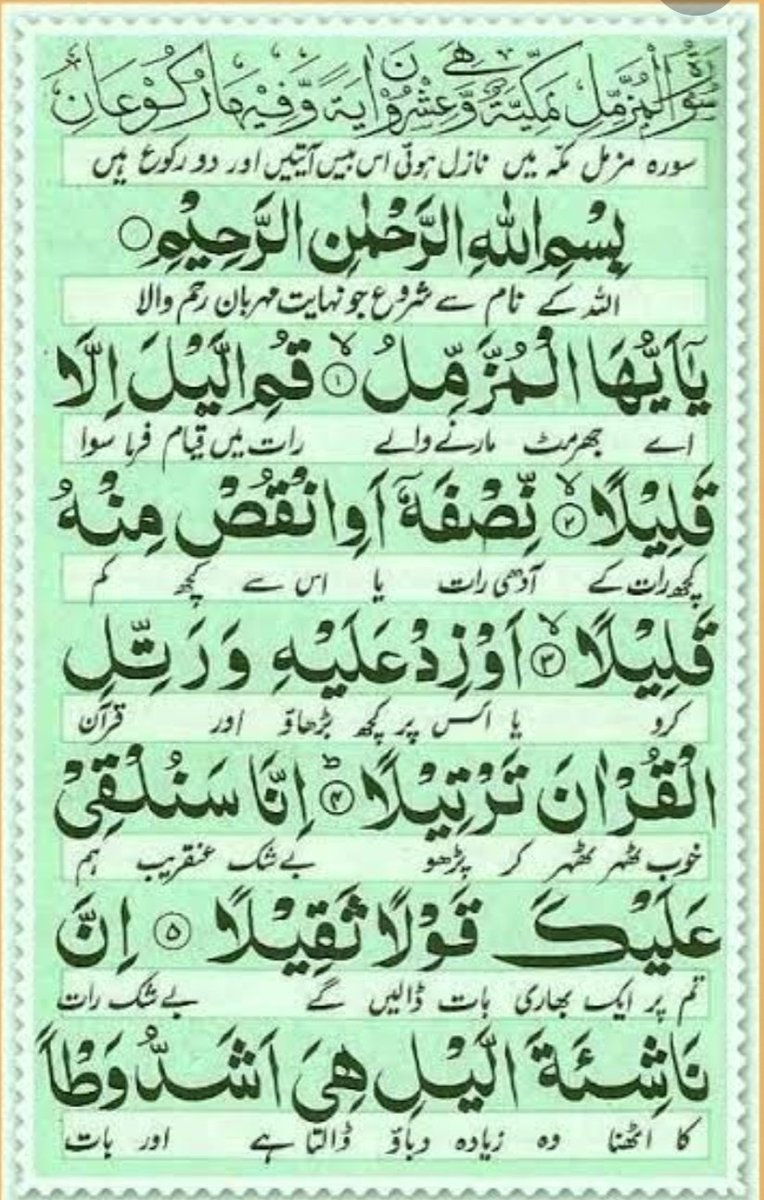 سُوْرَةُ الْمُزَّمِّلِ مَكِّيَّةٌ وَّهِيَ عِشْرُوْنَ اٰيَةً وَّفِيْهَا رُكُوْعَانِ
سورہ مزمل مکہ میں نازل ہوئی اس بیس آیتیں اور دو رکوع ہیں
بِسْمِ اللّٰهِ الرَّحْمٰنِ الرَّحِيْمِ
اللہ کے نام سے شروع جو نہایت مہربان رحم والا
يٰۤاَيُّهَا الْمُزَّمِّلُ ۙ﴿۱﴾ قُمِ الَّيْلَ اِلَّا
اے جھرمٹ مارنے والے رات میں قیام فرما سوا
قَلِيْلًا ۙ﴿۲﴾ نِّصْفَهٗۤ اَوِ انْقُصْ مِنْهُ
کچھ رات کے آدھی رات یا اس سے کچھ کم
قَلِيْلًا ۙ﴿۳﴾ اَوْ زِدْ عَلَيْهِ وَ رَتِّلِ
کرو یا اس پر کچھ بڑھاؤ اور قرآن
الْقُرْاٰنَ تَرْتِيْلًا ؕ﴿۴﴾ اِنَّا سَنُلْقِيْ
خوب ٹھہر ٹھہر کر پڑھو بےشک عنقریب ہم
عَلَيْكَ قَوْلًا ثَقِيْلًا ﴿۵﴾ اِنَّ
تم پر ایک بھاری بات ڈالیں گے بےشک رات
نَاشِئَةَ الَّيْلِ هِيَ اَشَدُّ وَطْاً
کا اٹھنا وہ زیادہ دباؤ ڈالتا ہے اور بات